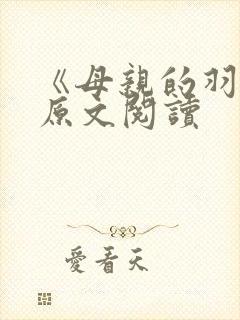 《母親的羽
原文閱讀
愛看天